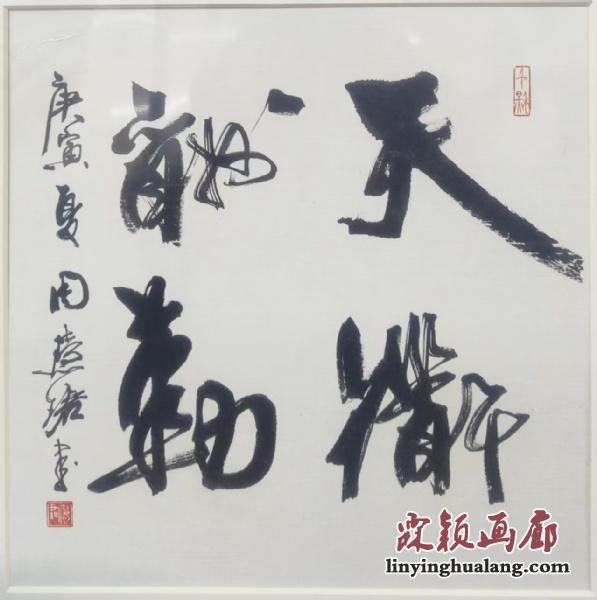 天道
酬勤
庚寅夏周慧珺书
霖颖画廊
linyinghualang.com